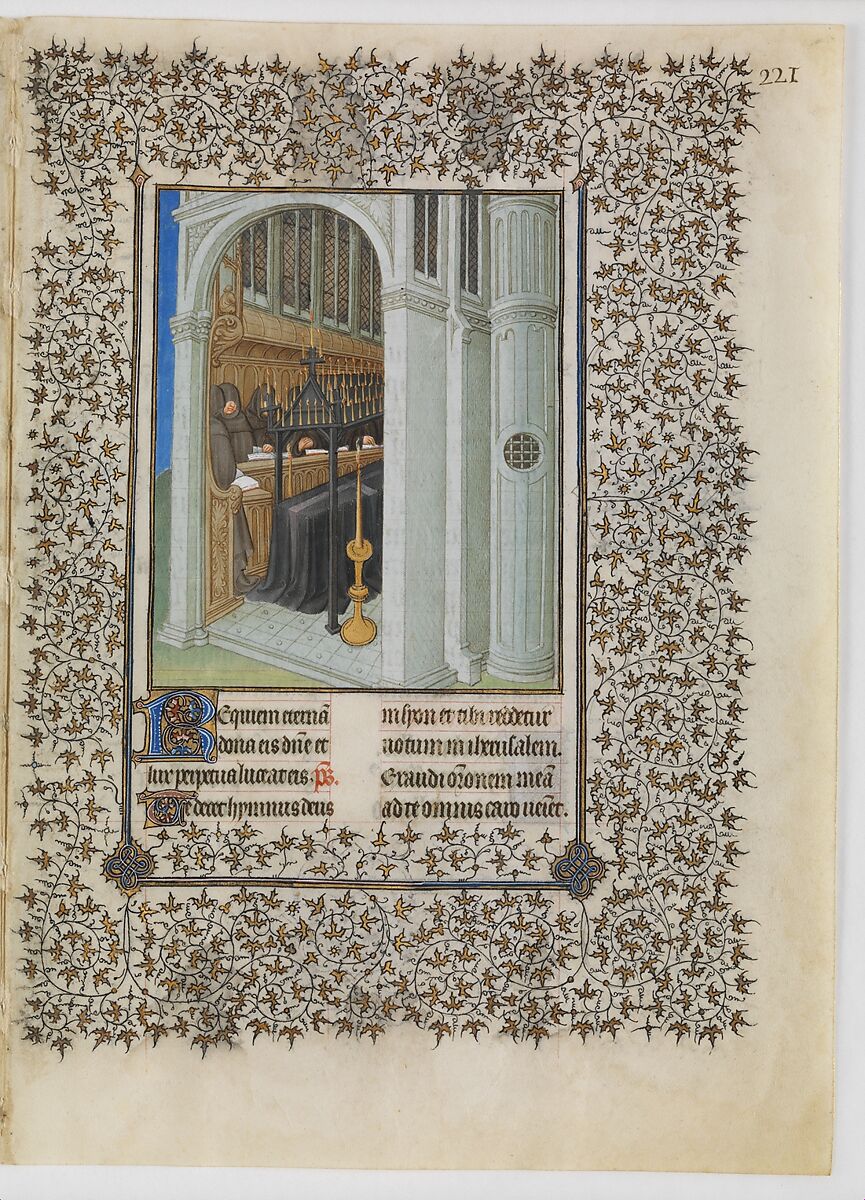 221
Requiem eternā
dona eis dn̄e et
lux perpetua luceat eis. ps̄.
Te decet hymnus deus
in syon et tibi reddetur
uotum in iherusalem.
Exaudi or̄onem meā
ad te omnis caro ueiet.